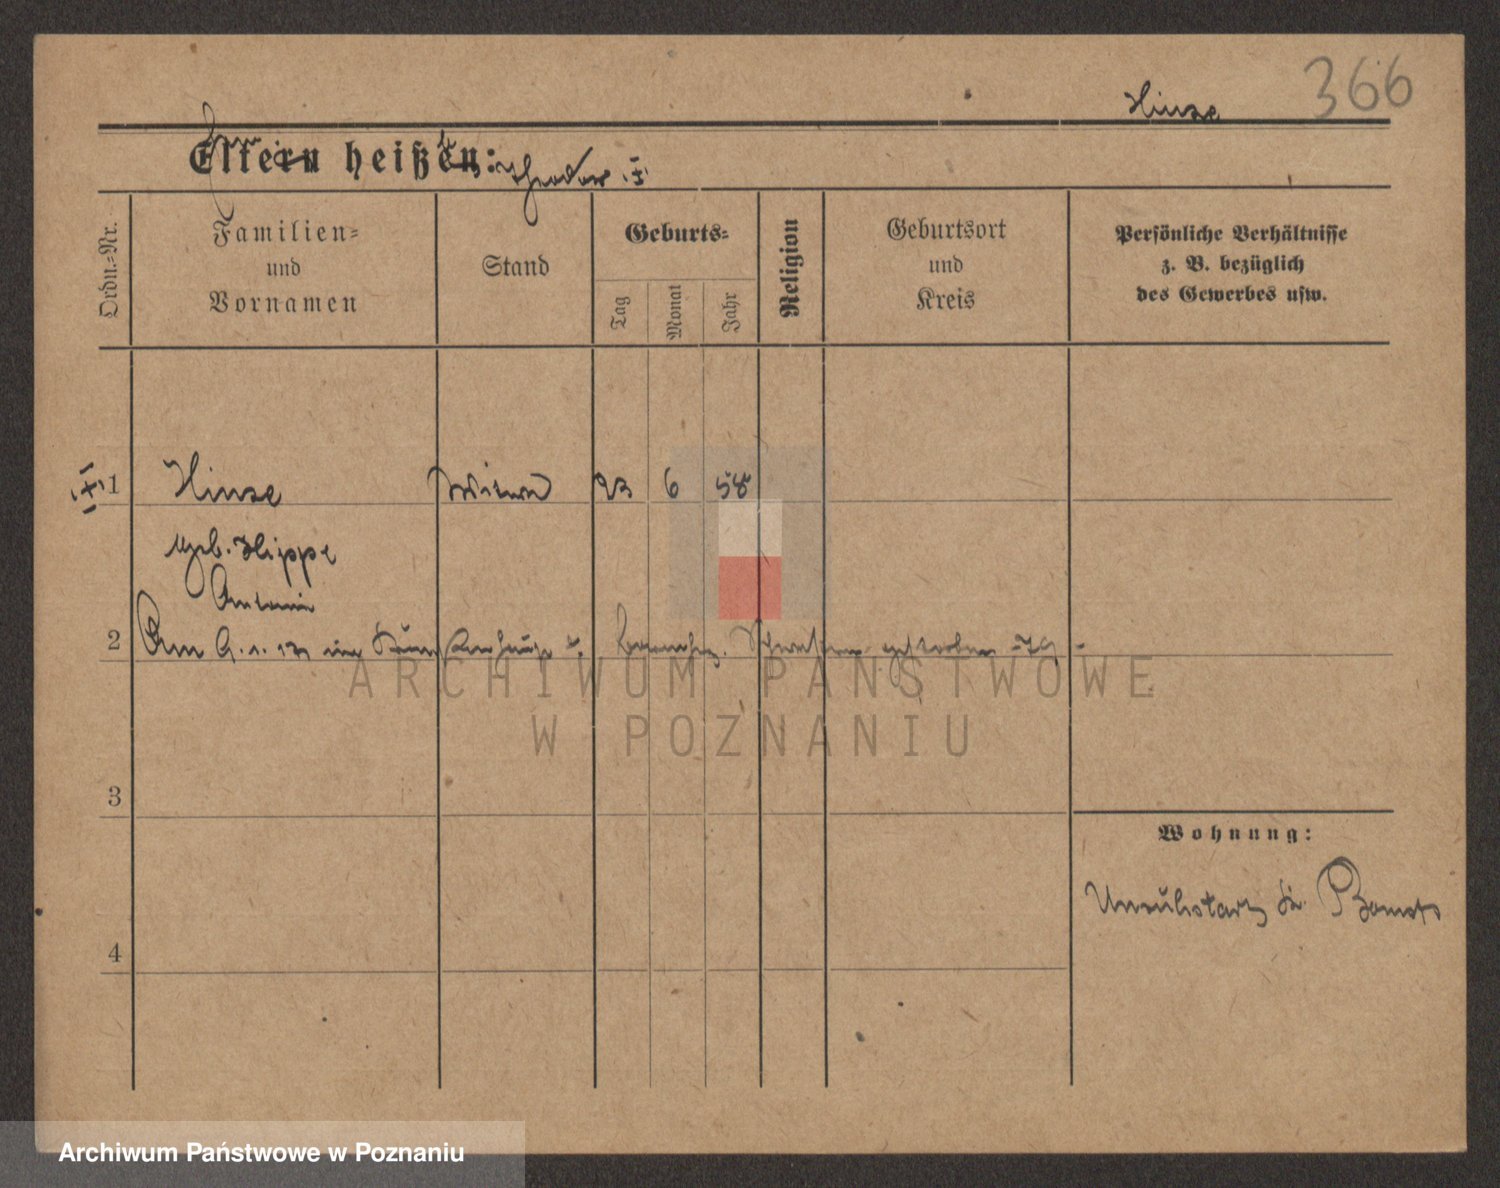 366
Hinze
Eltern heißen: Theodor
Ordn.-Nr.
Familien-
und
Vornamen
Stand
Geburts-
Tag
Monat
Jahr
Religion
Geburtsort
und
Kreis
Persönliche Verhältnisse
z. B. bezüglich
des Gewerbes usw.
1 Hinze Witwe 23 6 58
geb. Hippe
2 Am 9. 1. im gestorben
ARCHIWUM PAŃSTWOWE
W POZNANIU
3
Wohnung:
Unruhstadt Kr. Bomst
4
Archiwum Państwowe w Poznaniu